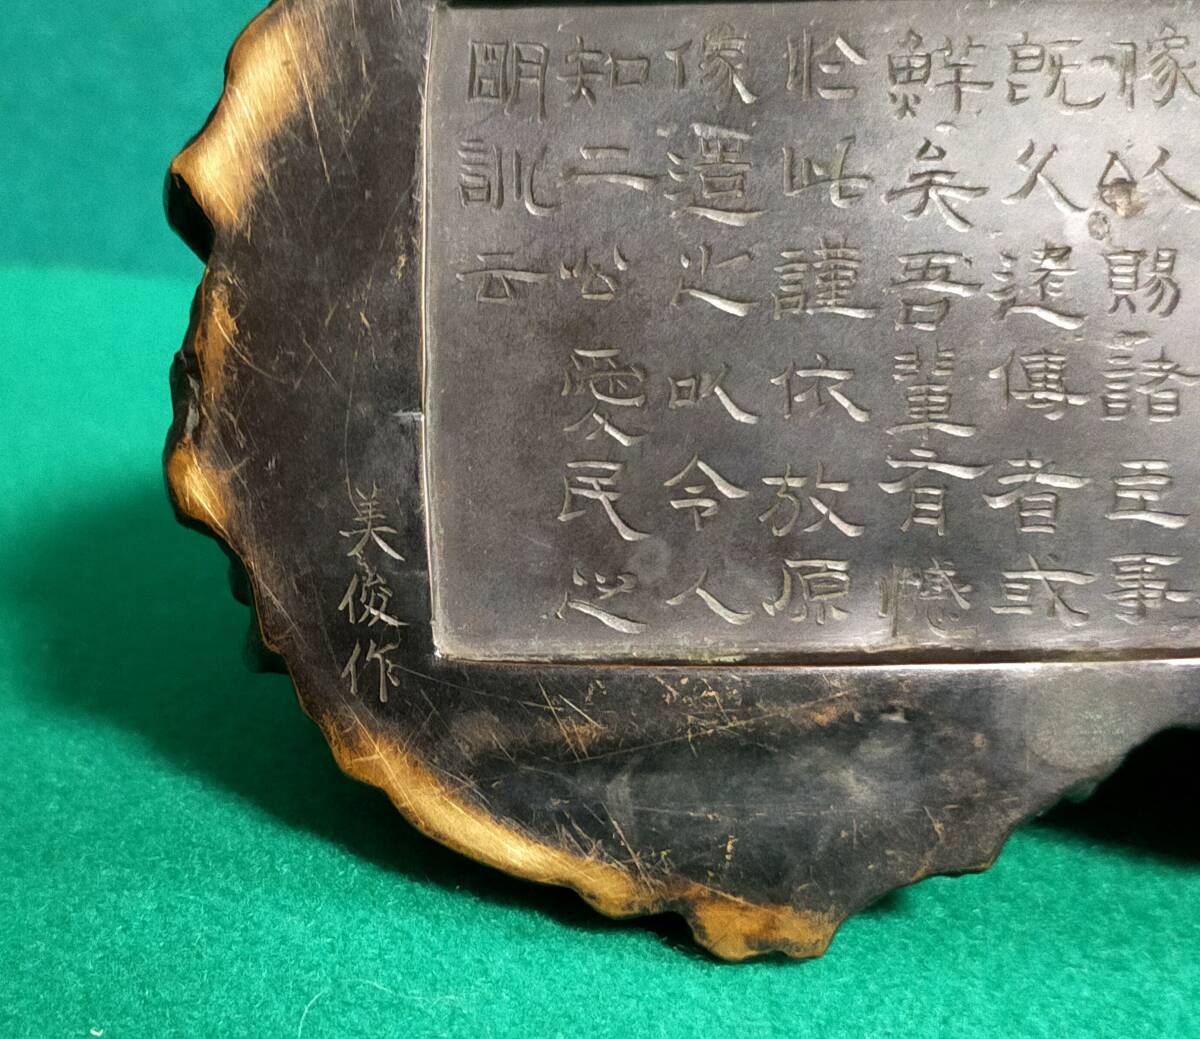 像以賜諸臣事
既久遠傳者或
鮮矣吾輩有憾
於此謹依放原
像造之以令人
知二公愛民之
明訓云
美俊作